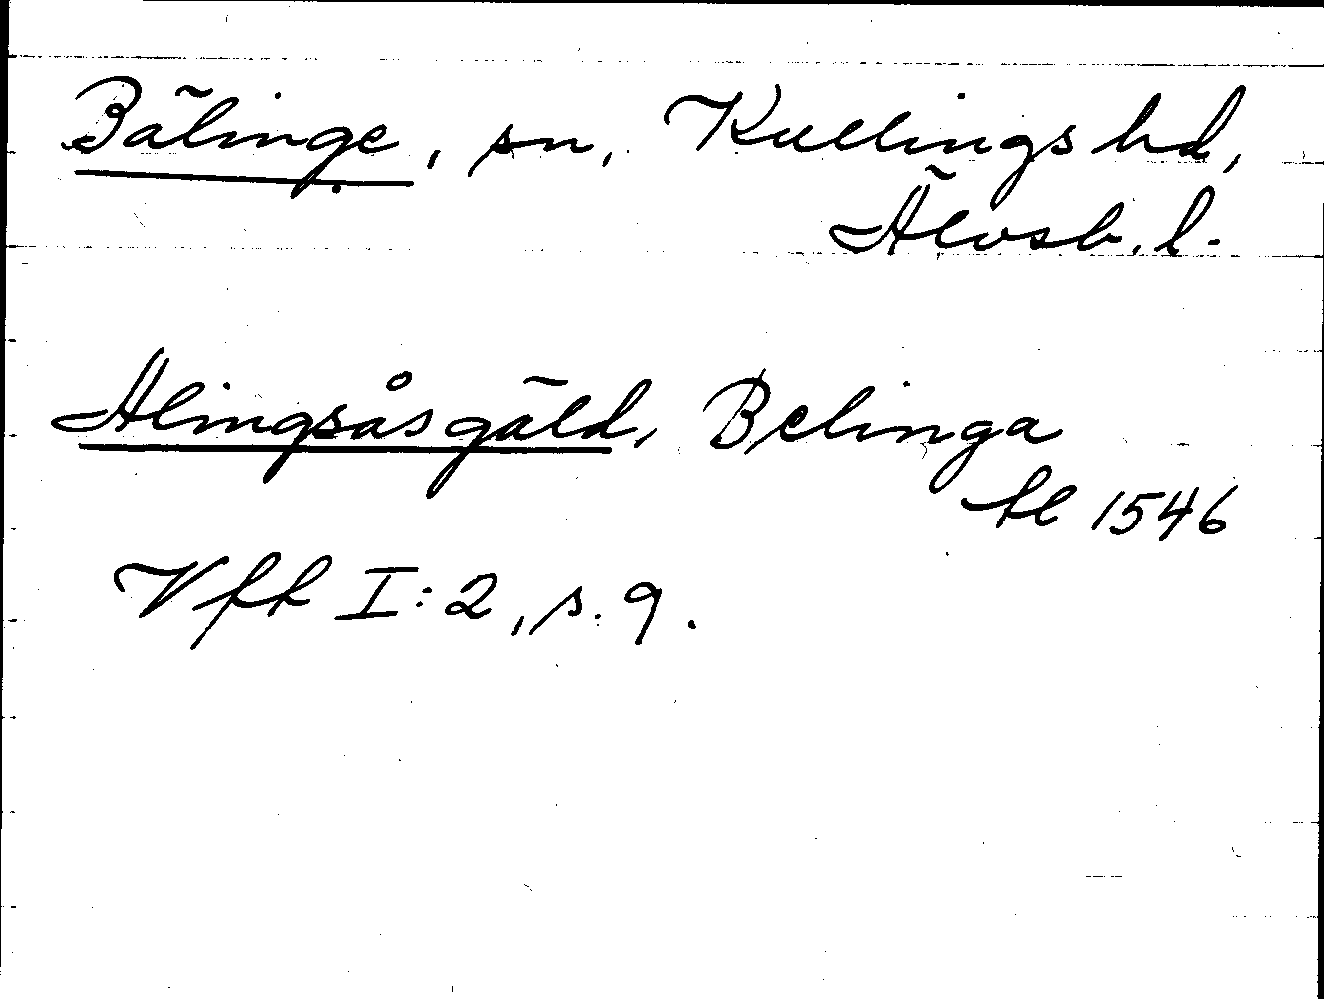 Bälinge, sn, Kullings hd,
Älvsb. l.
Alingsås gäld, Belinga
hl 1546
Vfft I:2, s. 9.